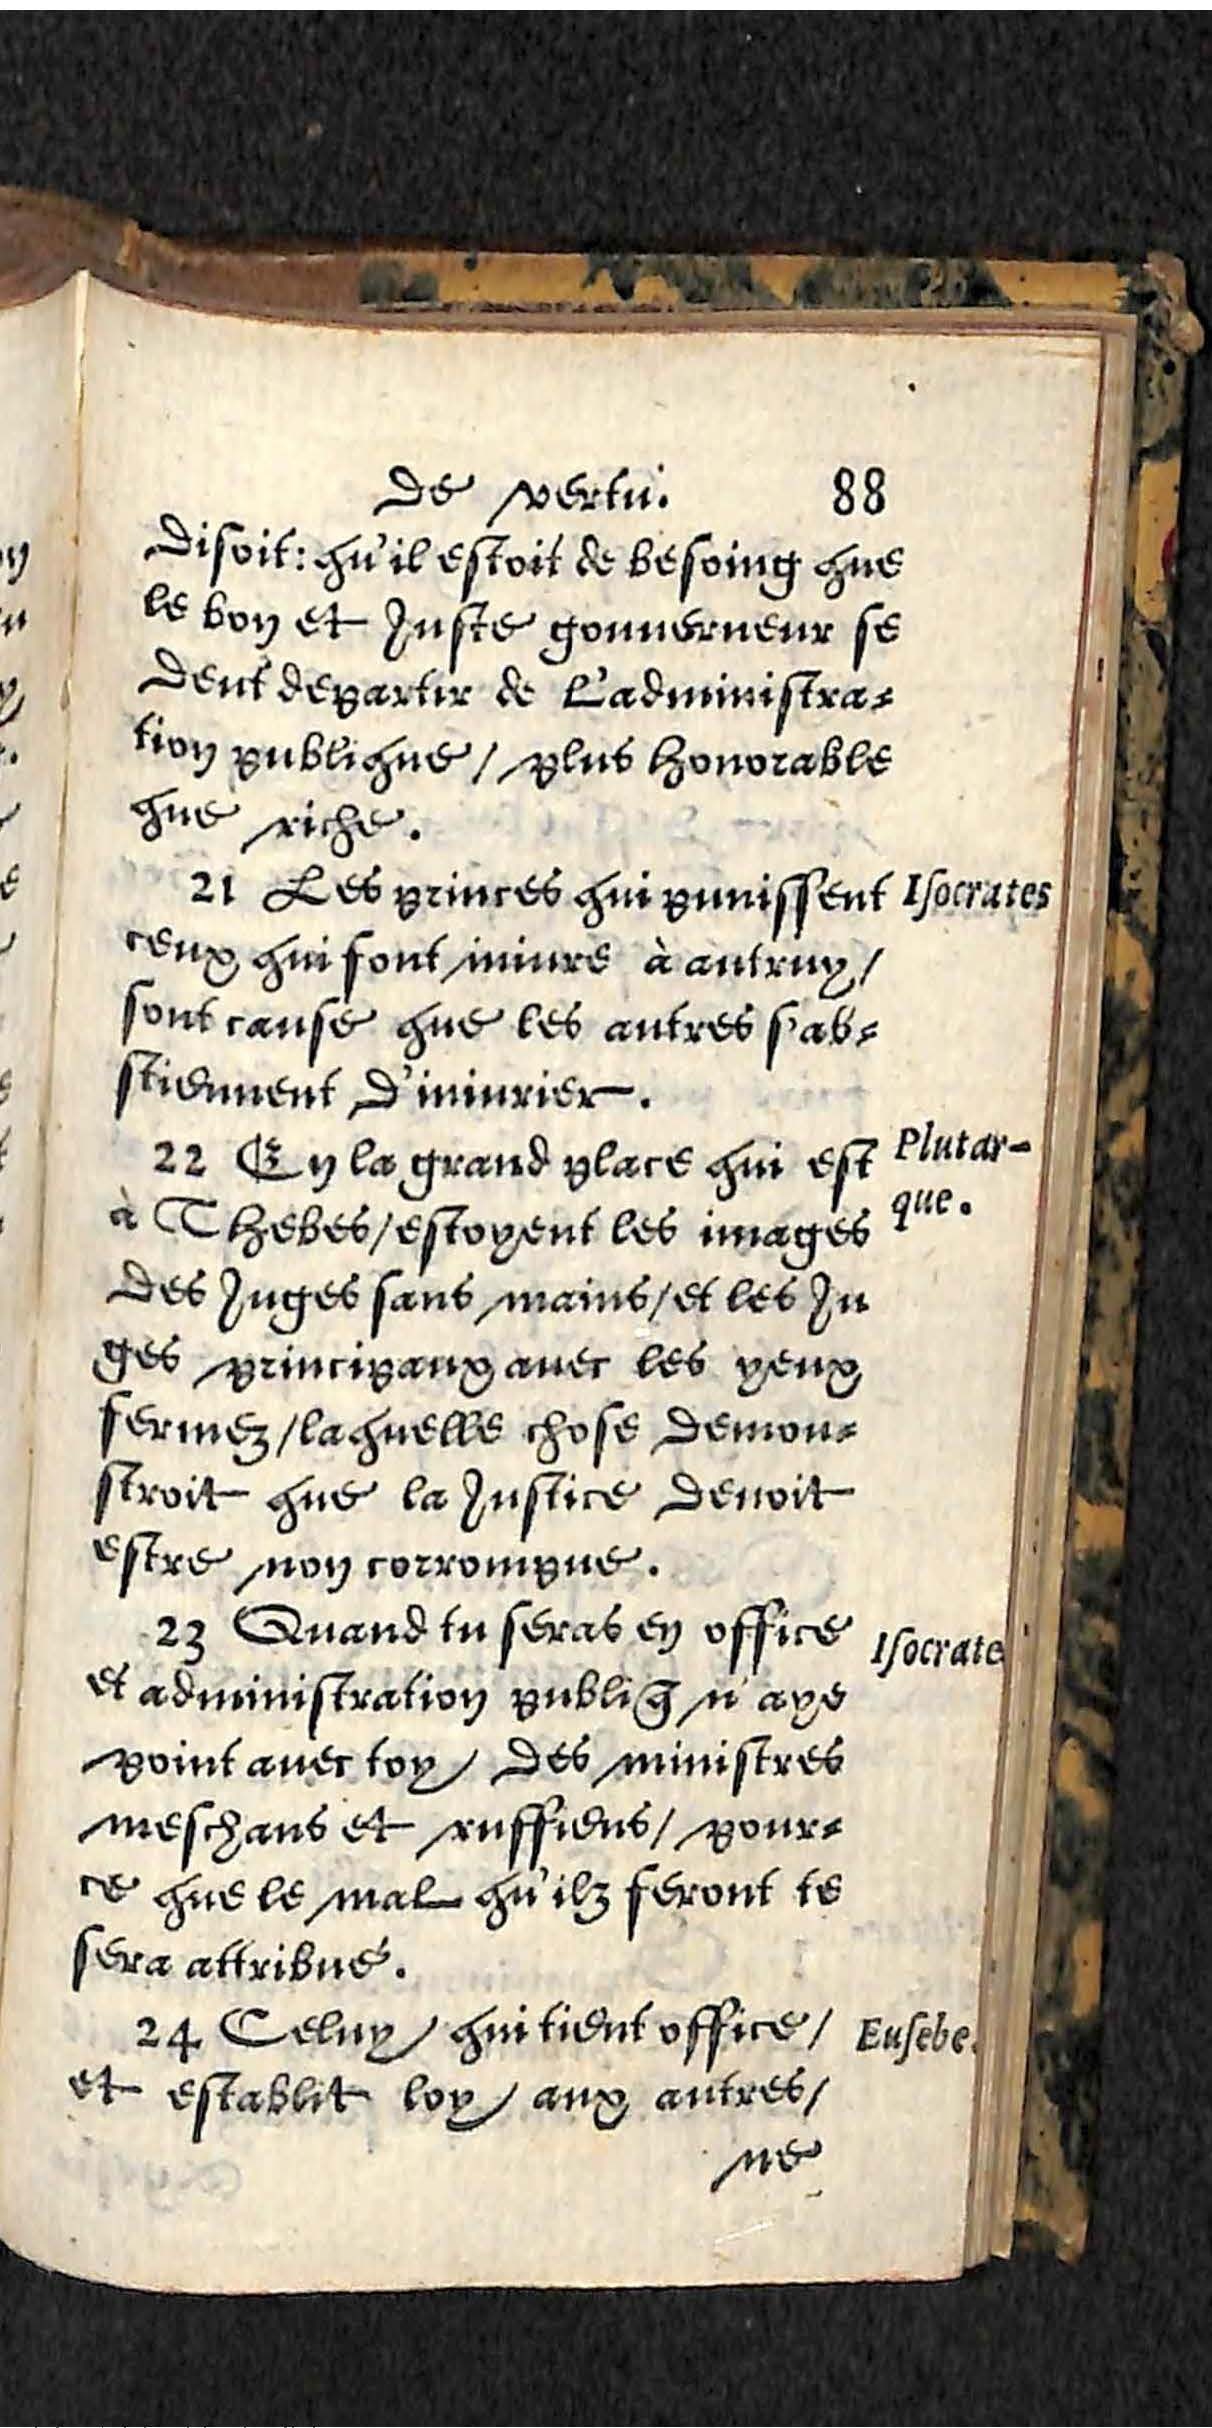 De vertu. 88
Disoit: qu'il estoit de besoing que
le bon et Juste gouuerneur se
Deut departir de L'administra-
tion publique / plus honorable
que riche.
21 Les princes qui punissent Isocrates
ceux qui font iniure à autruy /
sont cause que les autres s'ab-
stiennent D'iniurier.
22 En la grand place qui est Plutar-
à Thebes / estoyent les images que.
Des Juges sans mains / et les Ju
ges principaux auec les yeux
fermez / laquelle chose Demon-
stroit que la Justice Deuoit
estre non corrompue.
23 Quand tu seras en office Isocrate
et administration publiq̃ n'aye
point auec toy / Des ministres
meschans et ruffiens / pour-
ce que le mal qu'ilz feront te
sera attribué.
24 Celuy / qui tient office / Eusebe.
et establit loy / aux autres /
ne